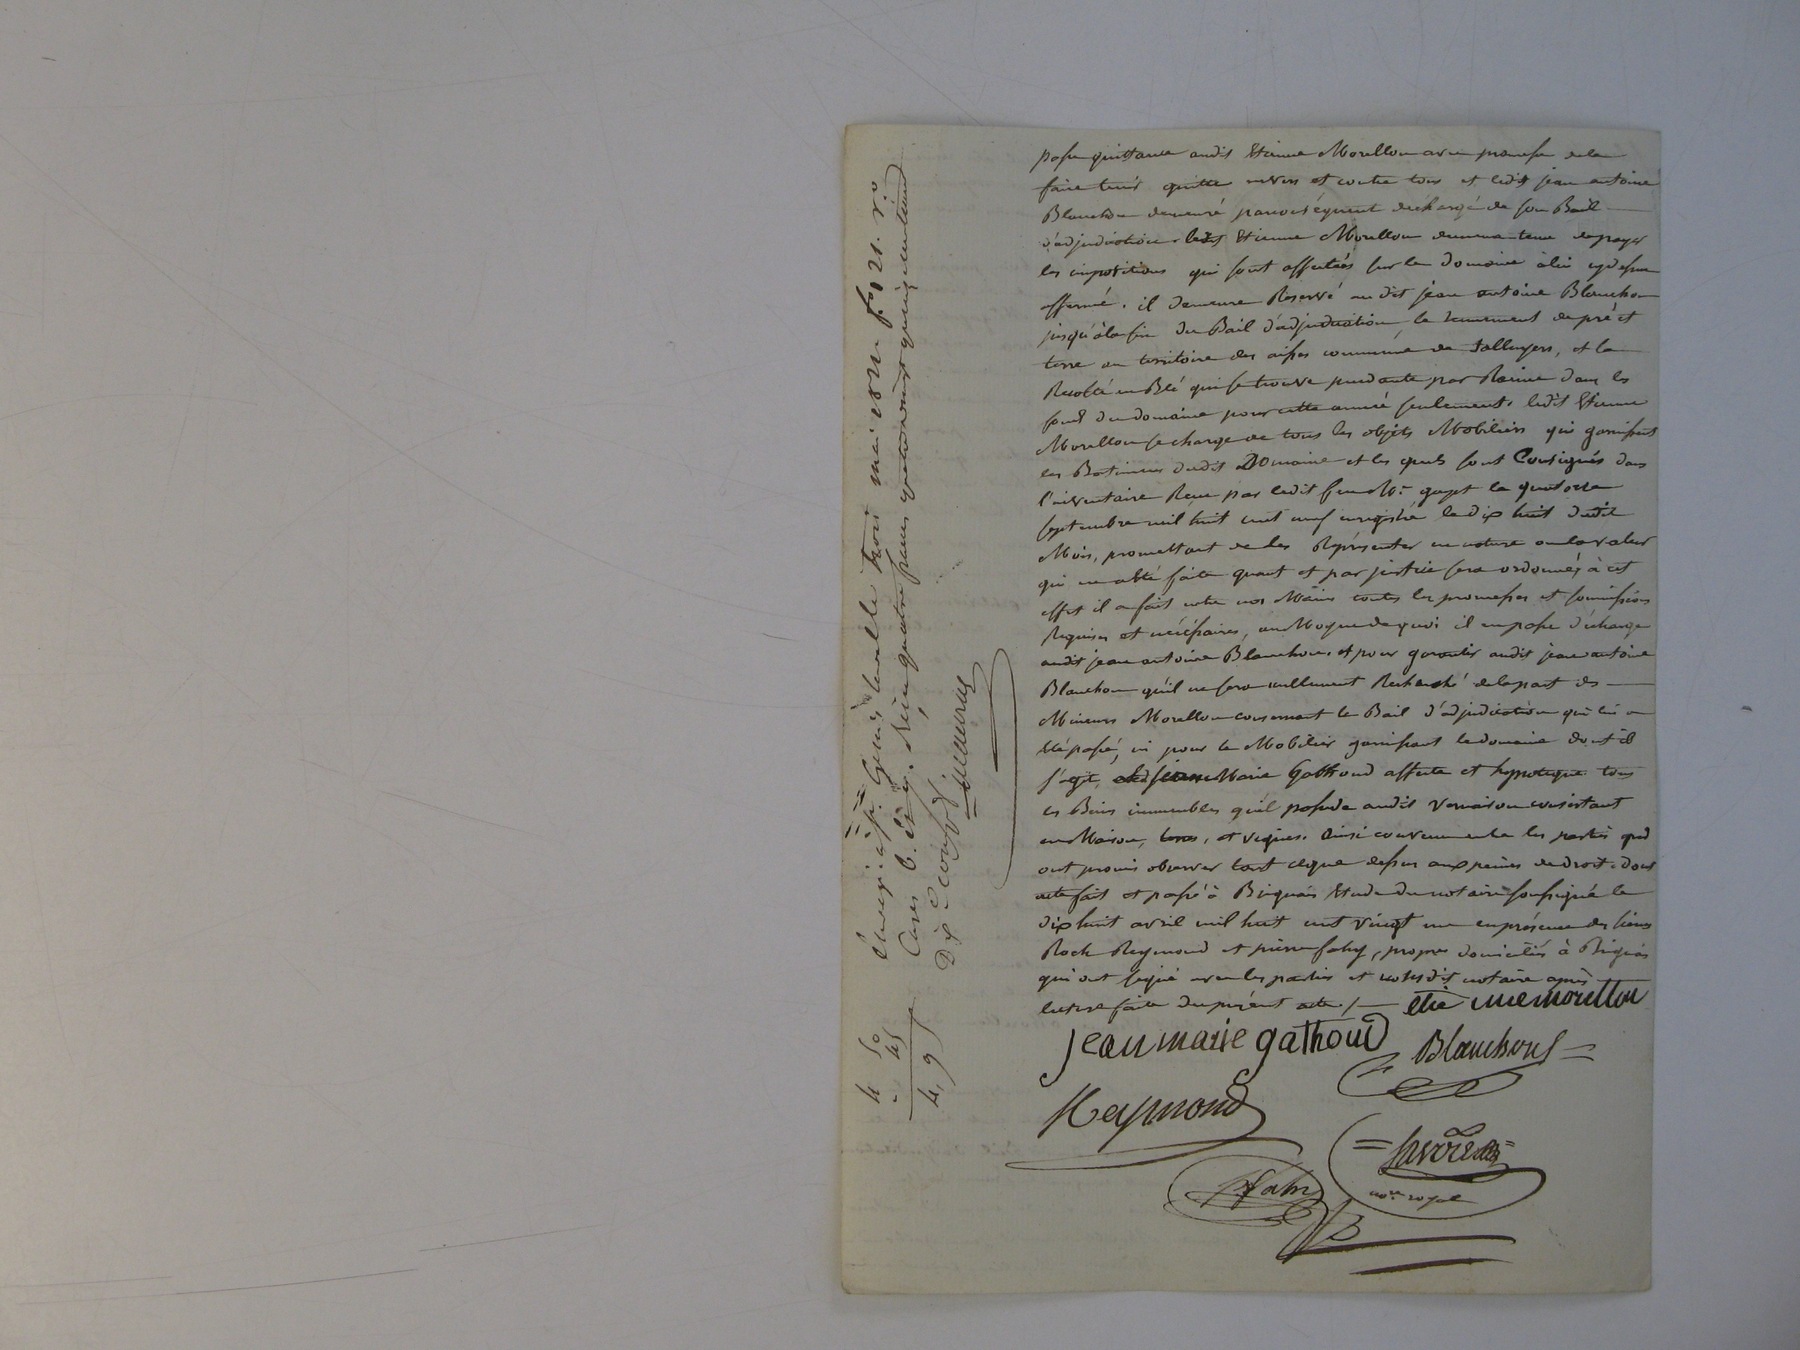 passe quittance audit Etienne Morellon avec promesse de le
faire tenir quitte envers et contre tous et ledit jean antoine
Blanchon demeuré parconséquent dechargé de son Bail
d'adjudication ledit Etienne Morellon demeurant tenu de payer
les impositions qui sont affectées sur le domaine à lui cydessus
affermé. il demeure Reservé au dit jean antoine Blanchon
jusqu'à la fin du Bail d'adjudication, le tenement de pré et
terre au territoire des aisses commune de Talluyers, et la
Recolte en Blé qui se trouve pendante par Racine dans les
fonds du domaine pour cette année seulement. ledit Etienne
Morellon se charge de tous les objets Mobiliers qui garnissent
les Batimens dudit Domaine et les quels sont Consignés dans
l'inventaire Recu par ledit feu Me. gayet le quatorze
septembre mil huit cent neuf enregistré le dix huit dudit
Mois, promettant de les Représenter en nature ou la valeur
qui en a été faite quant et par justice sera ordonné, à cet
effet il a fait entre nos Mains toutes les promesses et soumissions
Requises et nécéssaires, au Moyen de quoi il en passe décharge
audit jean antoine Blanchon. et pour garantir audit jean antoine
Blanchon qu'il ne sera nullement Recherché de la part des
Mineurs Morellon concernant le Bail d'adjudication qui lui a
été passé, ni pour le Mobilier garnissant le domaine dont il
s'agit, jean Marie Gathoud affecte et hypoteque tous
les Biens immeubles qu'il possede audit Vernaison consistant
en Maison, terres, et vignes. Ainsi convenu entre les parties qui
ont promis observer tout ce que dessus aux peines de droit. Dont
acte fait et passé à Briguais Etude du notaire soussigné le
dix huit avril mil huit cent vingt un en présence des sieurs
Roch Reymond et pierre fahy, propres domiciliés à Briguais
qui ont signé avec les parties et nousdit notaire après
lecture faite du présent acte ./. etienne morellon
jean marie gathoud Blanchon
Reymond
fahy
nore. royal
Enregistré à St. Genis Laval le trois mai 1821 fo 21. ro
Cases 6. & 7. Reçu quatre francs quatre vingt quinze centimes
Dixe compris
4 50
45
4, 95